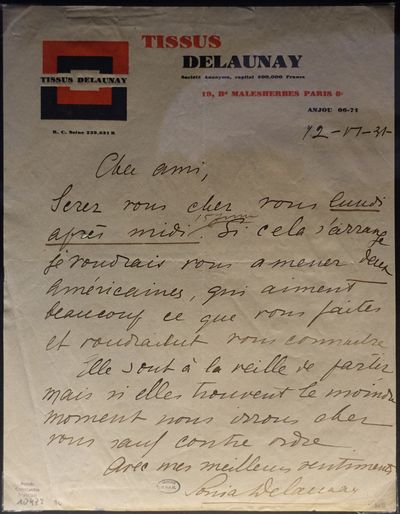 TISSUS
DELAUNAY
Société Anonyme, capital 400.000 Francs
TISSUS DELAUNAY
19, Bd MALESHERBES PARIS 8e
ANJOU 06-71
R. C. Seine 239.681 B
12-VI-31-
Cher ami,
Serez vous chez vous lundi
15 juin
après midi. Si cela s'arrange
je voudrais vous amener deux
américaines, qui aiment
beaucoup ce que vous faites
et voudraient vous connaitre
Elle sont à la veille de partir
mais si elles trouvent le moindre
moment nous irons chez
vous sauf contre ordre
Avec mes meilleurs sentiments
Sonia Delaunay